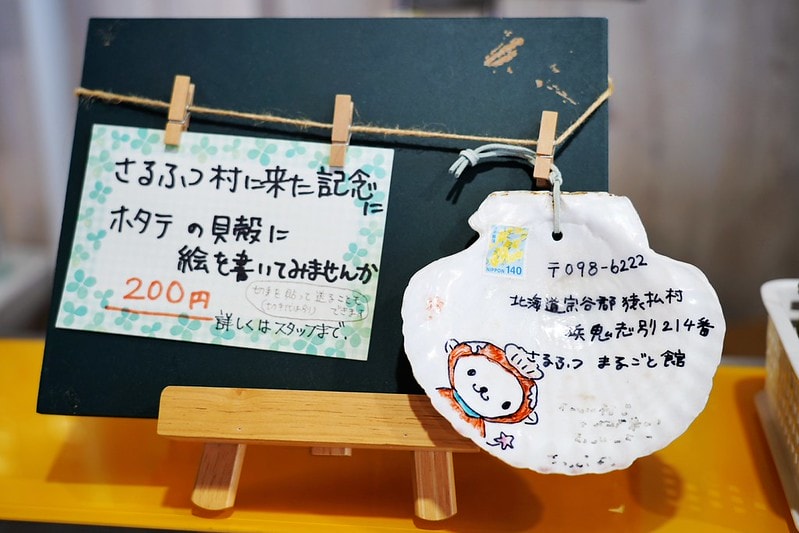 さるふつ村に来た記念に
ホタテの貝殻に
絵を書いてみませんか
200円
切手を貼って送ることも
できます
詳しくはスタッフまで.
NIPPON 140
〒098-6222
北海道宗谷郡猿払村
浜鬼志別214番
さるふつ まるごと館